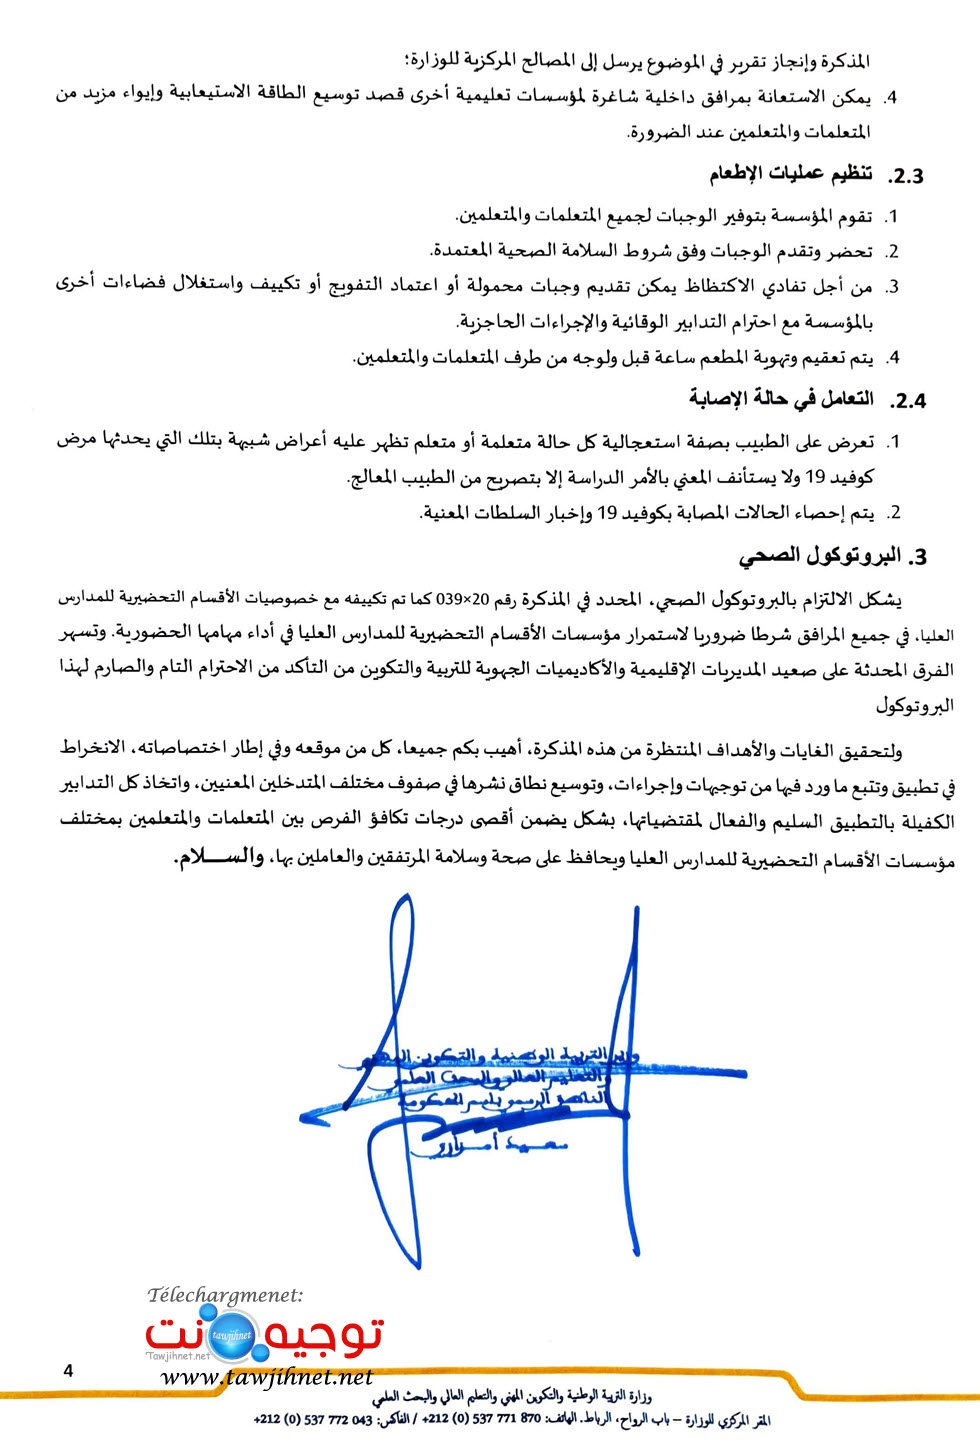 المذكرة وإنجاز تقرير في الموضوع يرسل إلى المصالح المركزية للوزارة؛
4. يمكن الاستعانة بمرافق داخلية شاغرة لمؤسسات تعليمية أخرى قصد توسيع الطاقة الاستيعابية وإيواء مزيد من
المتعلمات والمتعلمين عند الضرورة.
2.3. تنظيم عمليات الإطعام
1. تقوم المؤسسة بتوفير الوجبات لجميع المتعلمات والمتعلمين.
2. تحضر وتقدم الوجبات وفق شروط السلامة الصحية المعتمدة.
3. من أجل تفادي الاكتظاظ يمكن تقديم وجبات محمولة أو اعتماد التفويج أو تكييف واستغلال فضاءات أخرى
بالمؤسسة مع احترام التدابير الوقائية والإجراءات الحاجزية.
4. يتم تعقيم وتهوية المطعم ساعة قبل ولوجه من طرف المتعلمات والمتعلمين.
2.4. التعامل في حالة الإصابة
1. تعرض على الطبيب بصفة استعجالية كل حالة متعلمة أو متعلم تظهر عليه أعراض شبيهة بتلك التي يحدثها مرض
كوفيد 19 ولا يستأنف المعني بالأمر الدراسة إلا بتصريح من الطبيب المعالج.
2. يتم إحصاء الحالات المصابة بكوفيد 19 وإخبار السلطات المعنية.
3. البروتوكول الصحي
يشكل الالتزام بالبروتوكول الصحي، المحدد في المذكرة رقم 20×039 كما تم تكييفه مع خصوصيات الأقسام التحضيرية للمدارس
العليا، في جميع المرافق شرطا ضروريا لاستمرار مؤسسات الأقسام التحضيرية للمدارس العليا في أداء مهامها الحضورية. وتسهر
الفرق المحدثة على صعيد المديريات الإقليمية والأكاديميات الجهوية للتربية والتكوين من التأكد من الاحترام التام والصارم لهذا
البروتوكول
ولتحقيق الغايات والأهداف المنتظرة من هذه المذكرة، أهيب بكم جميعا، كل من موقعه وفي إطار اختصاصاته، الانخراط
في تطبيق وتتبع ما ورد فيها من توجيهات وإجراءات، وتوسيع نطاق نشرها في صفوف مختلف المتدخلين المعنيين، واتخاذ كل التدابير
الكفيلة بالتطبيق السليم والفعال لمقتضياتها، بشكل يضمن أقصى درجات تكافؤ الفرص بين المتعلمات والمتعلمين بمختلف
مؤسسات الأقسام التحضيرية للمدارس العليا ويحافظ على صحة وسلامة المرتفقين والعاملين بها، والســـلام.
وزير التربية الوطنية والتكوين المهني
والتعليم العالي والبحث العلمي
الناطق الرسمي باسم الحكومة
سعيد أمزازي
Télechargmenet:
توجيه نت
tawjihnet
Tawjihnet.net
www.tawjihnet.net
4
وزارة التربية الوطنية والتكوين المهني والتعليم العالي والبحث العلمي
المقر المركزي للوزارة – باب الرواح، الرباط. الهاتف: 870 771 537 (0) 212+ / الفاكس: 043 772 537 (0) 212+